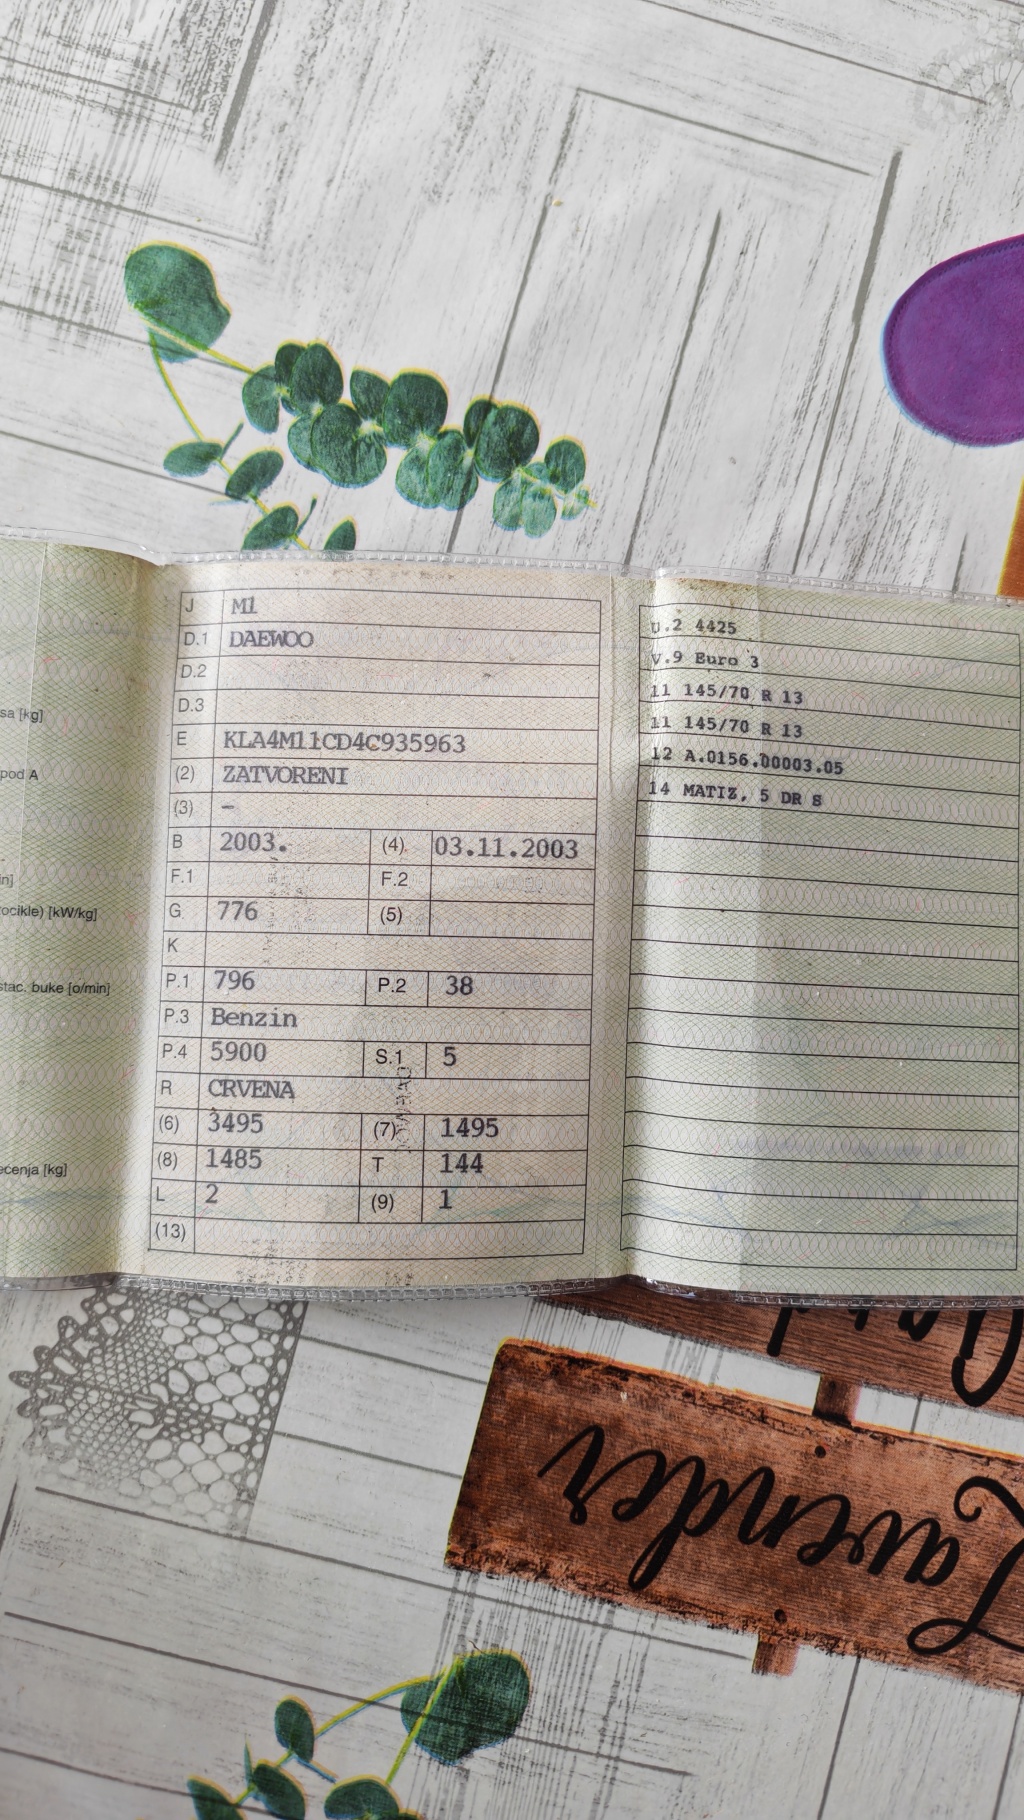 sa [kg]
pod A
in]
ocikle) [kW/kg]
stac. buke [o/min]
ecenja [kg]
J M1
D.1 DAEWOO
D.2
D.3
E KLA4M11CD4C935963
(2) ZATVORENI
(3) -
B 2003. (4) 03.11.2003
F.1 F.2
G 776 (5)
K
P.1 796 P.2 38
P.3 Benzin
P.4 5900 S.1 5
R CRVENA
(6) 3495 (7) 1495
(8) 1485 T 144
L 2 (9) 1
(13)
U.2 4425
V.9 Euro 3
11 145/70 R 13
11 145/70 R 13
12 A.0156.00003.05
14 MATIZ, 5 DR S
Lavender